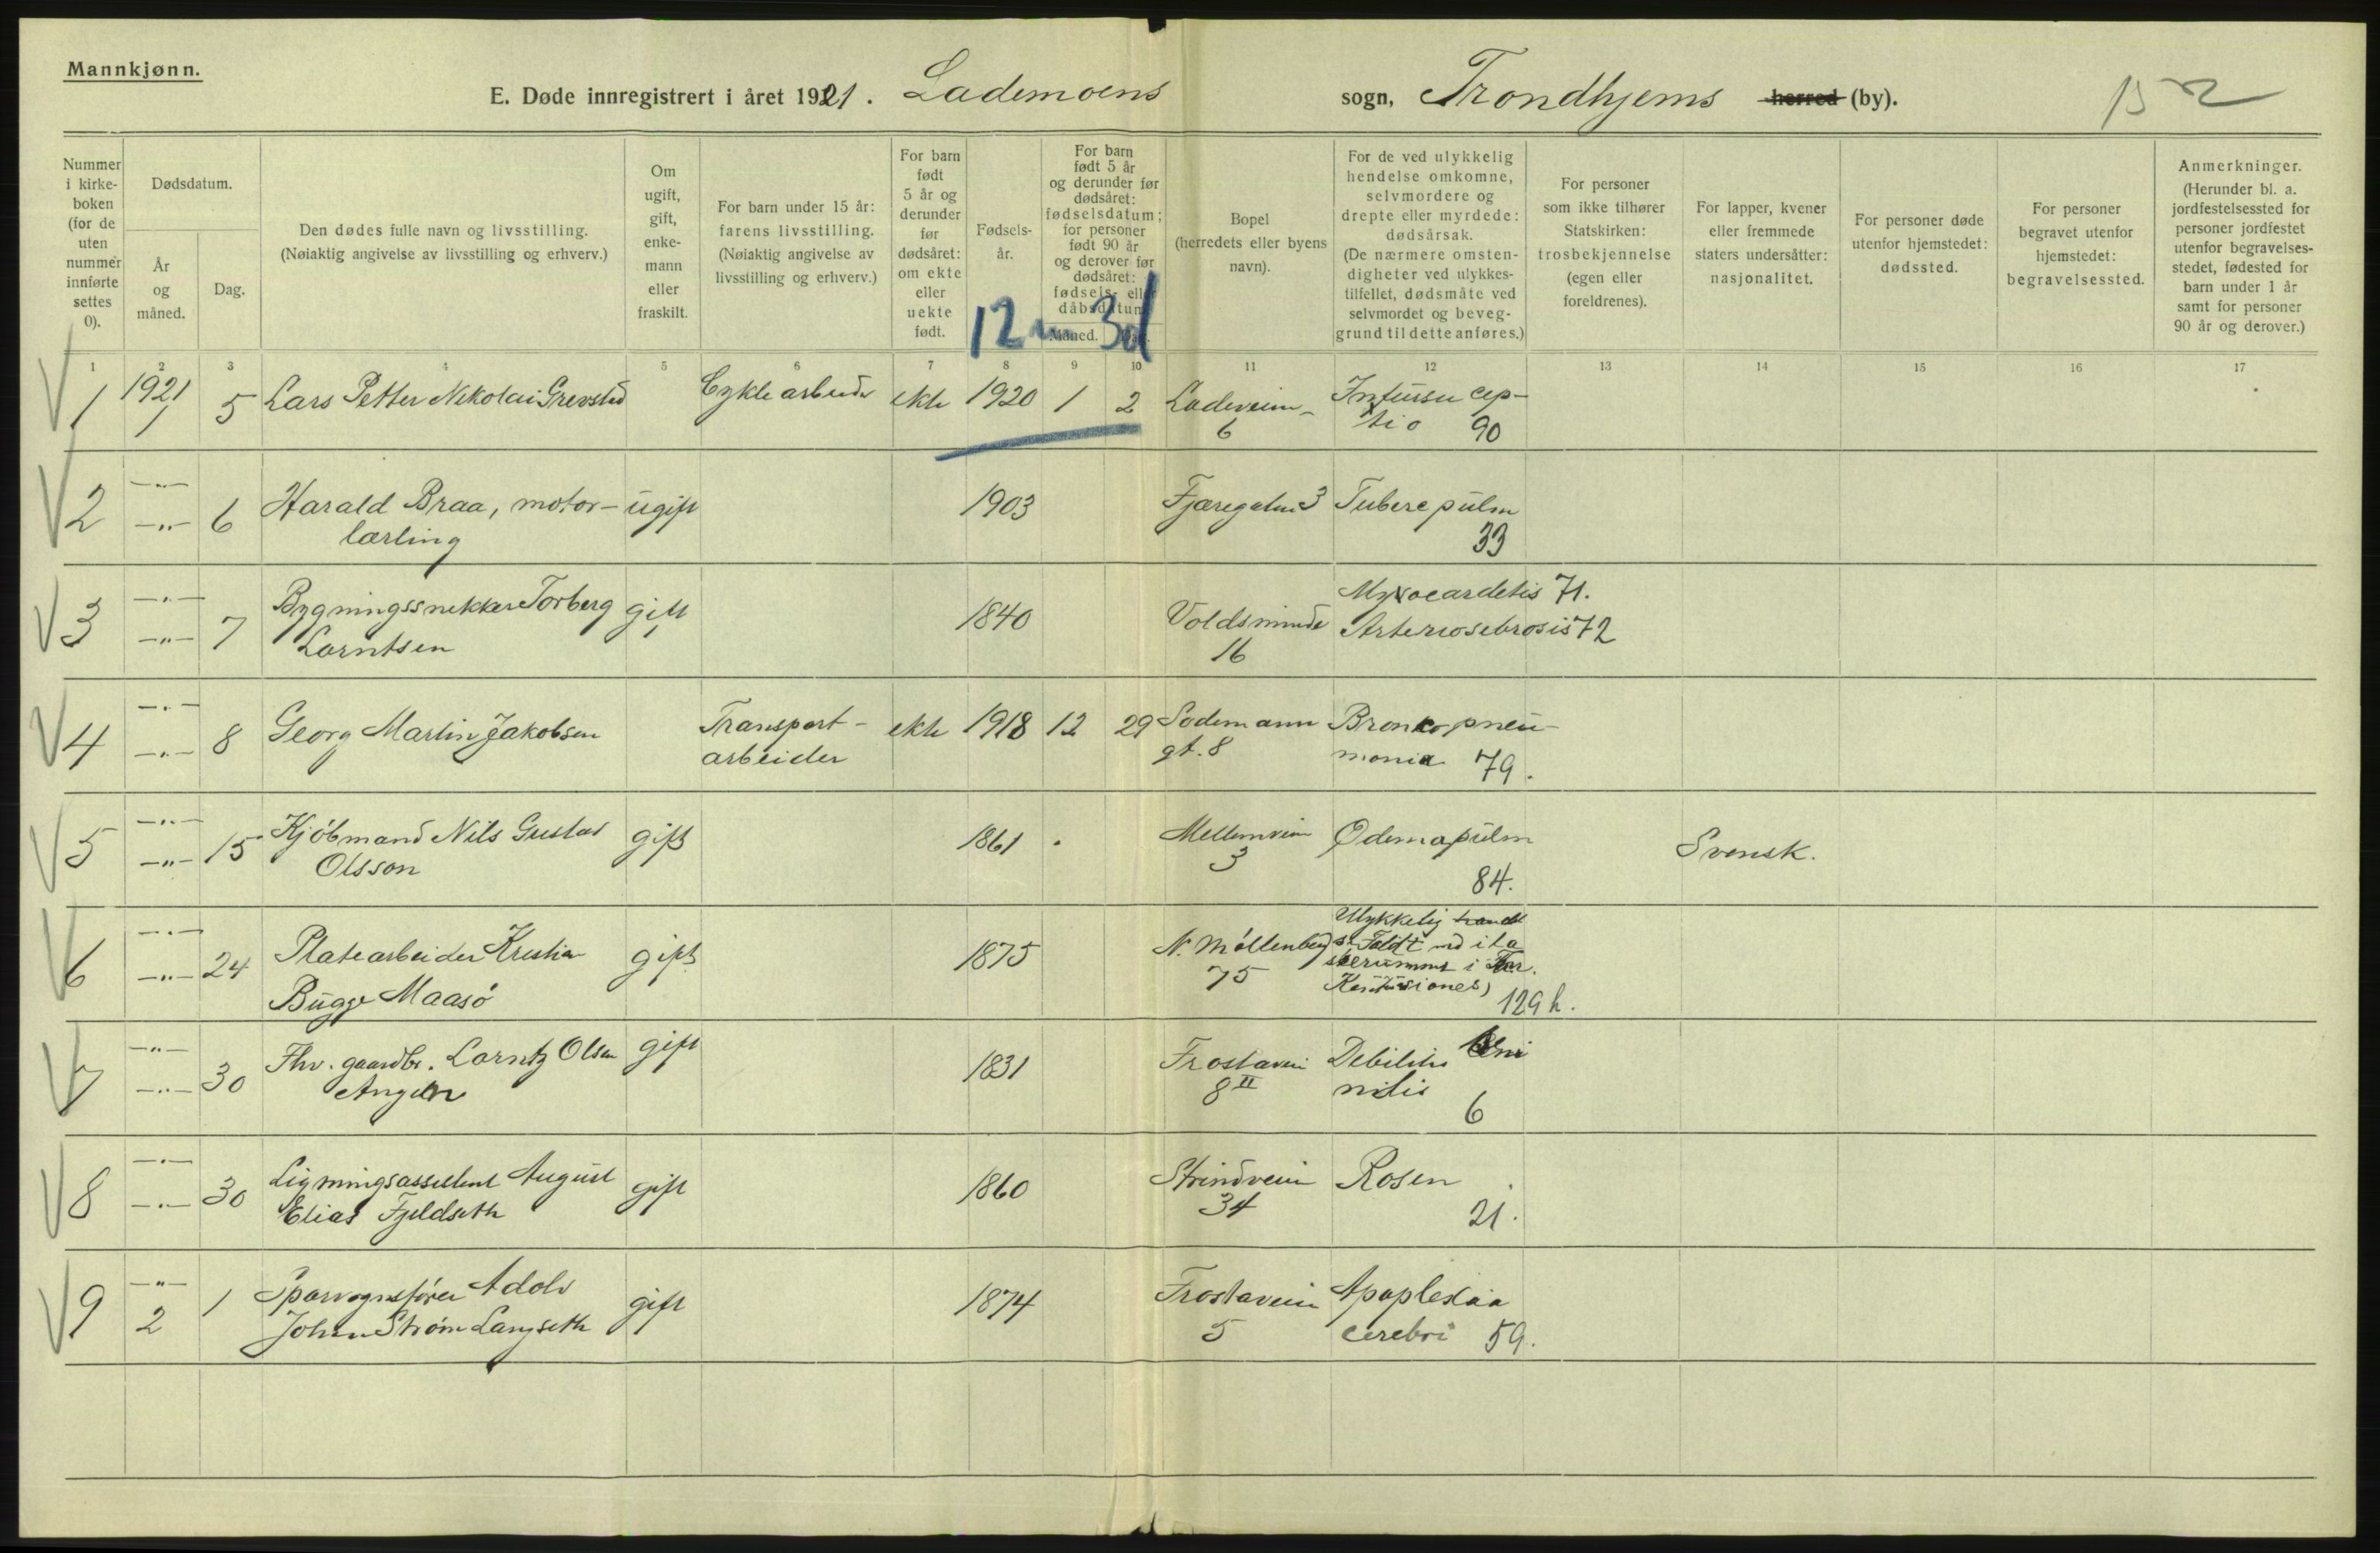 Mannkjønn.
E. Døde innregistrert i året 1921. Lademoens sogn, Trondhjems herred (by).
Nummer i kirke-boken (for de uten nummer innførte settes 0).
Dødsdatum.
År og måned.
Dag.
Den dødes fulle navn og livsstilling.
(Nøiaktig angivelse av livsstilling og erhverv.)
Om ugift, gift, enke-mann eller fraskilt.
For barn under 15 år: farens livsstilling.
(Nøiaktig angivelse av livsstilling og erhverv.)
For barn født 5 år og derunder før dødsåret: om ekte eller uekte født.
Fødsels-år.
For barn født 5 år og derunder før dødsåret: fødselsdatum; for personer født 90 år og derover før dødsåret: fødsels- eller dåbsdatum
Måned. Dag.
12 m 3d
Bopel (herredets eller byens navn).
For de ved ulykkelig hendelse omkomne, selvmordere og drepte eller myrdede: dødsårsak.
(De nærmere omsten-digheter ved ulykkes-tilfellet, dødsmåte ved selvmordet og beveg-grund til dette anføres.)
For personer som ikke tilhører Statskirken: trosbekjennelse (egen eller foreldrenes).
For lapper, kvener eller fremmede staters undersåtter: nasjonalitet.
For personer døde utenfor hjemstedet: dødssted.
For personer begravet utenfor hjemstedet: begravelsessted.
Anmerkninger.
(Herunder bl. a. jordfestelsessted for personer jordfestet utenfor begravelses-stedet, fødested for barn under 1 år samt for personer 90 år og derover.)
1 2 3 4 5 6 7 8 9 10 11 12 13 14 15 16 17
1 1921 1 5 Lars Petter Nikolai Grevstad Cykle arbeider ekte 1920 1 2 Ladeveien 6 Intussucep-
tio 90
2 —"— —"— 6 Harald Braa, motor- ugift 1903 Fjæregaten 3 Tuberc pulm
lærling 33
3 —"— —"— 7 Bygningssnekker Torberg gift 1840 Voldsminde Myocarditis 71.
Lorntsen 16 Arteriosclrosis 72
4 —"— —"— 8 Georg Martin Jakobsen Transport- ekte 1918 12 29 Sodemann Bronkopneu-
arbeider gt. 8 monia 79.
5 —"— —"— 15 Kjöbmand Nils Gustav gift 1861 Mellemveien Ødema pulm Svensk.
Olsson 3 84.
6 —"— —"— 24 Platearbeider Kristian gift 1875 N. Möllenberg Ulykkelig
Bugge Maasö 75 129 h.
7 —"— —"— 30 Fhv. gaardbr. Lorntz Olsen gift 1831 Frostaveien Debilitas
Angen 8 II 6
8 —"— —"— 30 Ligningsassistent August gift 1860 Strindveien Rosen
Elias Fjeldseth 34 21.
9 —"— 2 1 Sporvognsfører Adolv gift 1874 Frostaveien Apoplexia
Johan Strøm Langseth 5 cerebri 59.